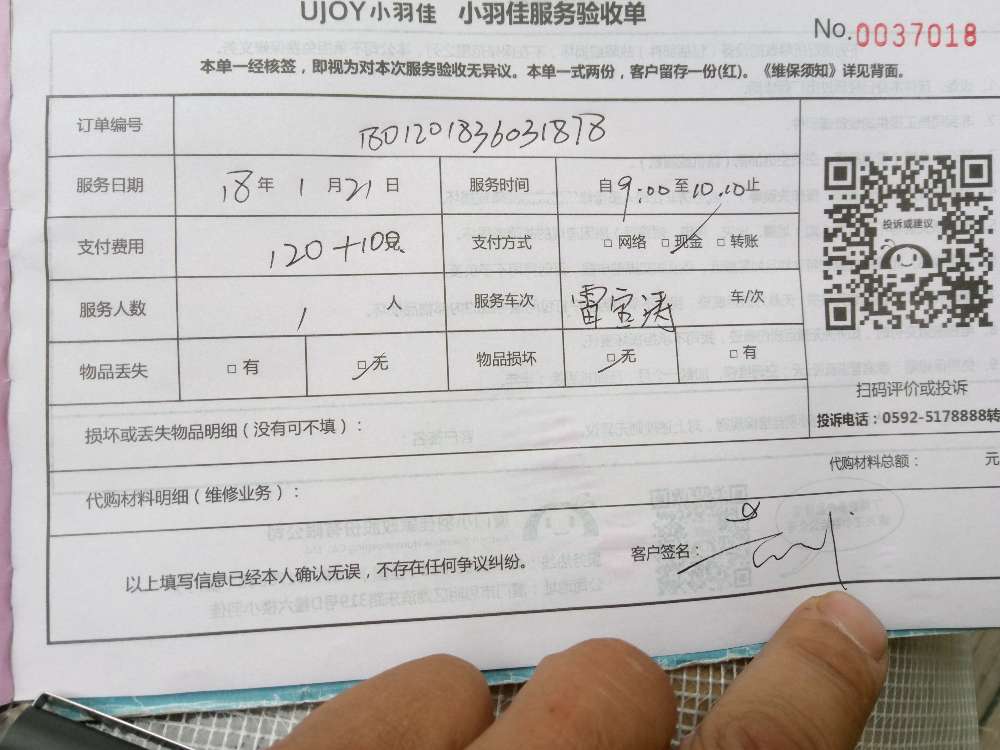 UJOY小羽佳 小羽佳服务验收单
No.0037018
本单一经核签，即视为对本次服务验收无异议。本单一式两份，客户留存一份(红)。《维保须知》详见背面。
订单编号
服务日期 18年 1月21日 服务时间 自9:00至10.10止
支付费用 120+10 支付方式 □网络 □现金 □转账
投诉或建议
服务人数 1人 服务车次 雷宝涛 车/次
物品丢失 □有 □无 物品损坏 □无 □有
扫码评价或投诉
投诉电话：0592-5178888转
损坏或丢失物品明细（没有可不填）：
代购材料总额： 元
代购材料明细（维修业务）：
以上填写信息已经本人确认无误，不存在任何争议纠纷。 客户签名：